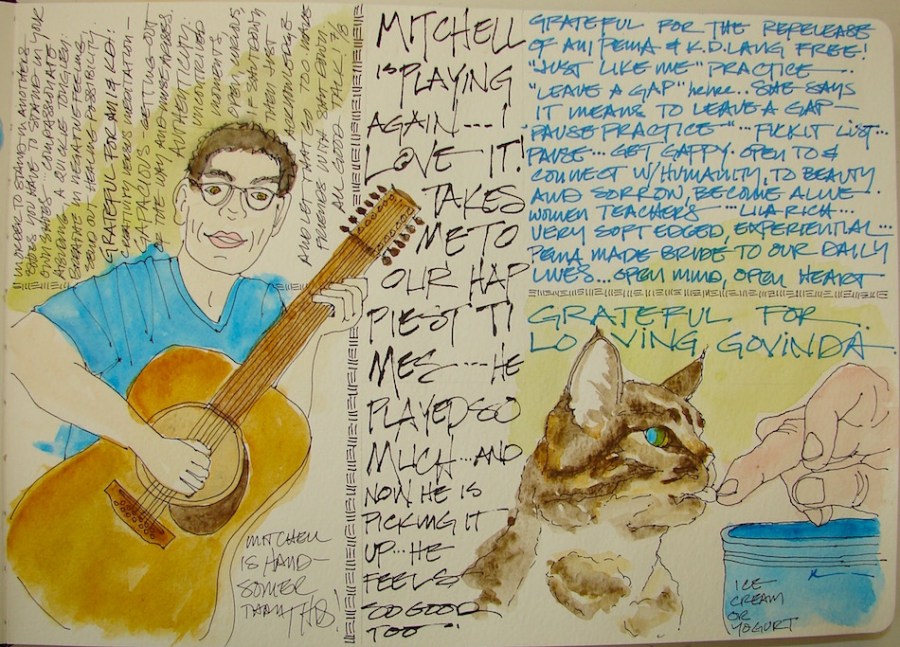 IN ORDER TO STAND IN ANOTHERS
SHOES YOU HAVE TO STAND IN YOUR
OWN SHOES... COMPASSIONATE
ABIDING. A QUICK TONGLEN:
BREATHE IN NEGATIVE FEELING,
SEND OUT HEALING POSSIBILITY
GRATEFUL FOR ANI & KD!
CREATIVITY NEEDS MEDITATION -
CAPACIOUS ... GETTING OUT
OF THE WAY AND MUSE ARISES.
AUTHENTICITY.
UNCONTRIVED
MOMENTS,
OPEN WINDOWS,
IF SHUT DOWN
THEN JUST
ACKNOWLEDGE
AND LET THAT GO TOO. MAKE
FRIENDS WITH SHUT DOWN
ALL GOOD TALK!
MITCHELL
IS PLAYING
AGAIN --- I
LOVE IT!
TAKES
ME TO
OUR HAP
PIEST TI
MES --- HE
PLAYED SO
MUCH ... AND
NOW HE IS
PICKING IT
UP... HE
FEELS
SO GOOD
TOO !
MITCHELL
IS HAND-
SOMER
THAN THIS!
GRATEFUL FOR THE REPELEASE
OF ANI PEMA & K.D. LANG FREE!
"JUST LIKE ME" PRACTICE ...
"LEAVE A GAP" hehe... SHE SAYS
IT MEANS TO LEAVE A GAP -
"PAUSE PRACTICE" ... FUCK IT LIST...
PAUSE... GET GAPPY. OPEN TO &
CONNECT W/ HUMANITY, TO BEAUTY
AND SORROW, BECOME ALIVE.
WOMEN TEACHERS ... LILA RICH ...
VERY SOFT EDGED, EXPERIENTIAL ...
PEMA MADE BRIDE TO OUR DAILY
LIVES... OPEN MIND, OPEN HEART
GRATEFUL FOR
LOVING GOVINDA.
ICE
CREAM
OR
YOGURT